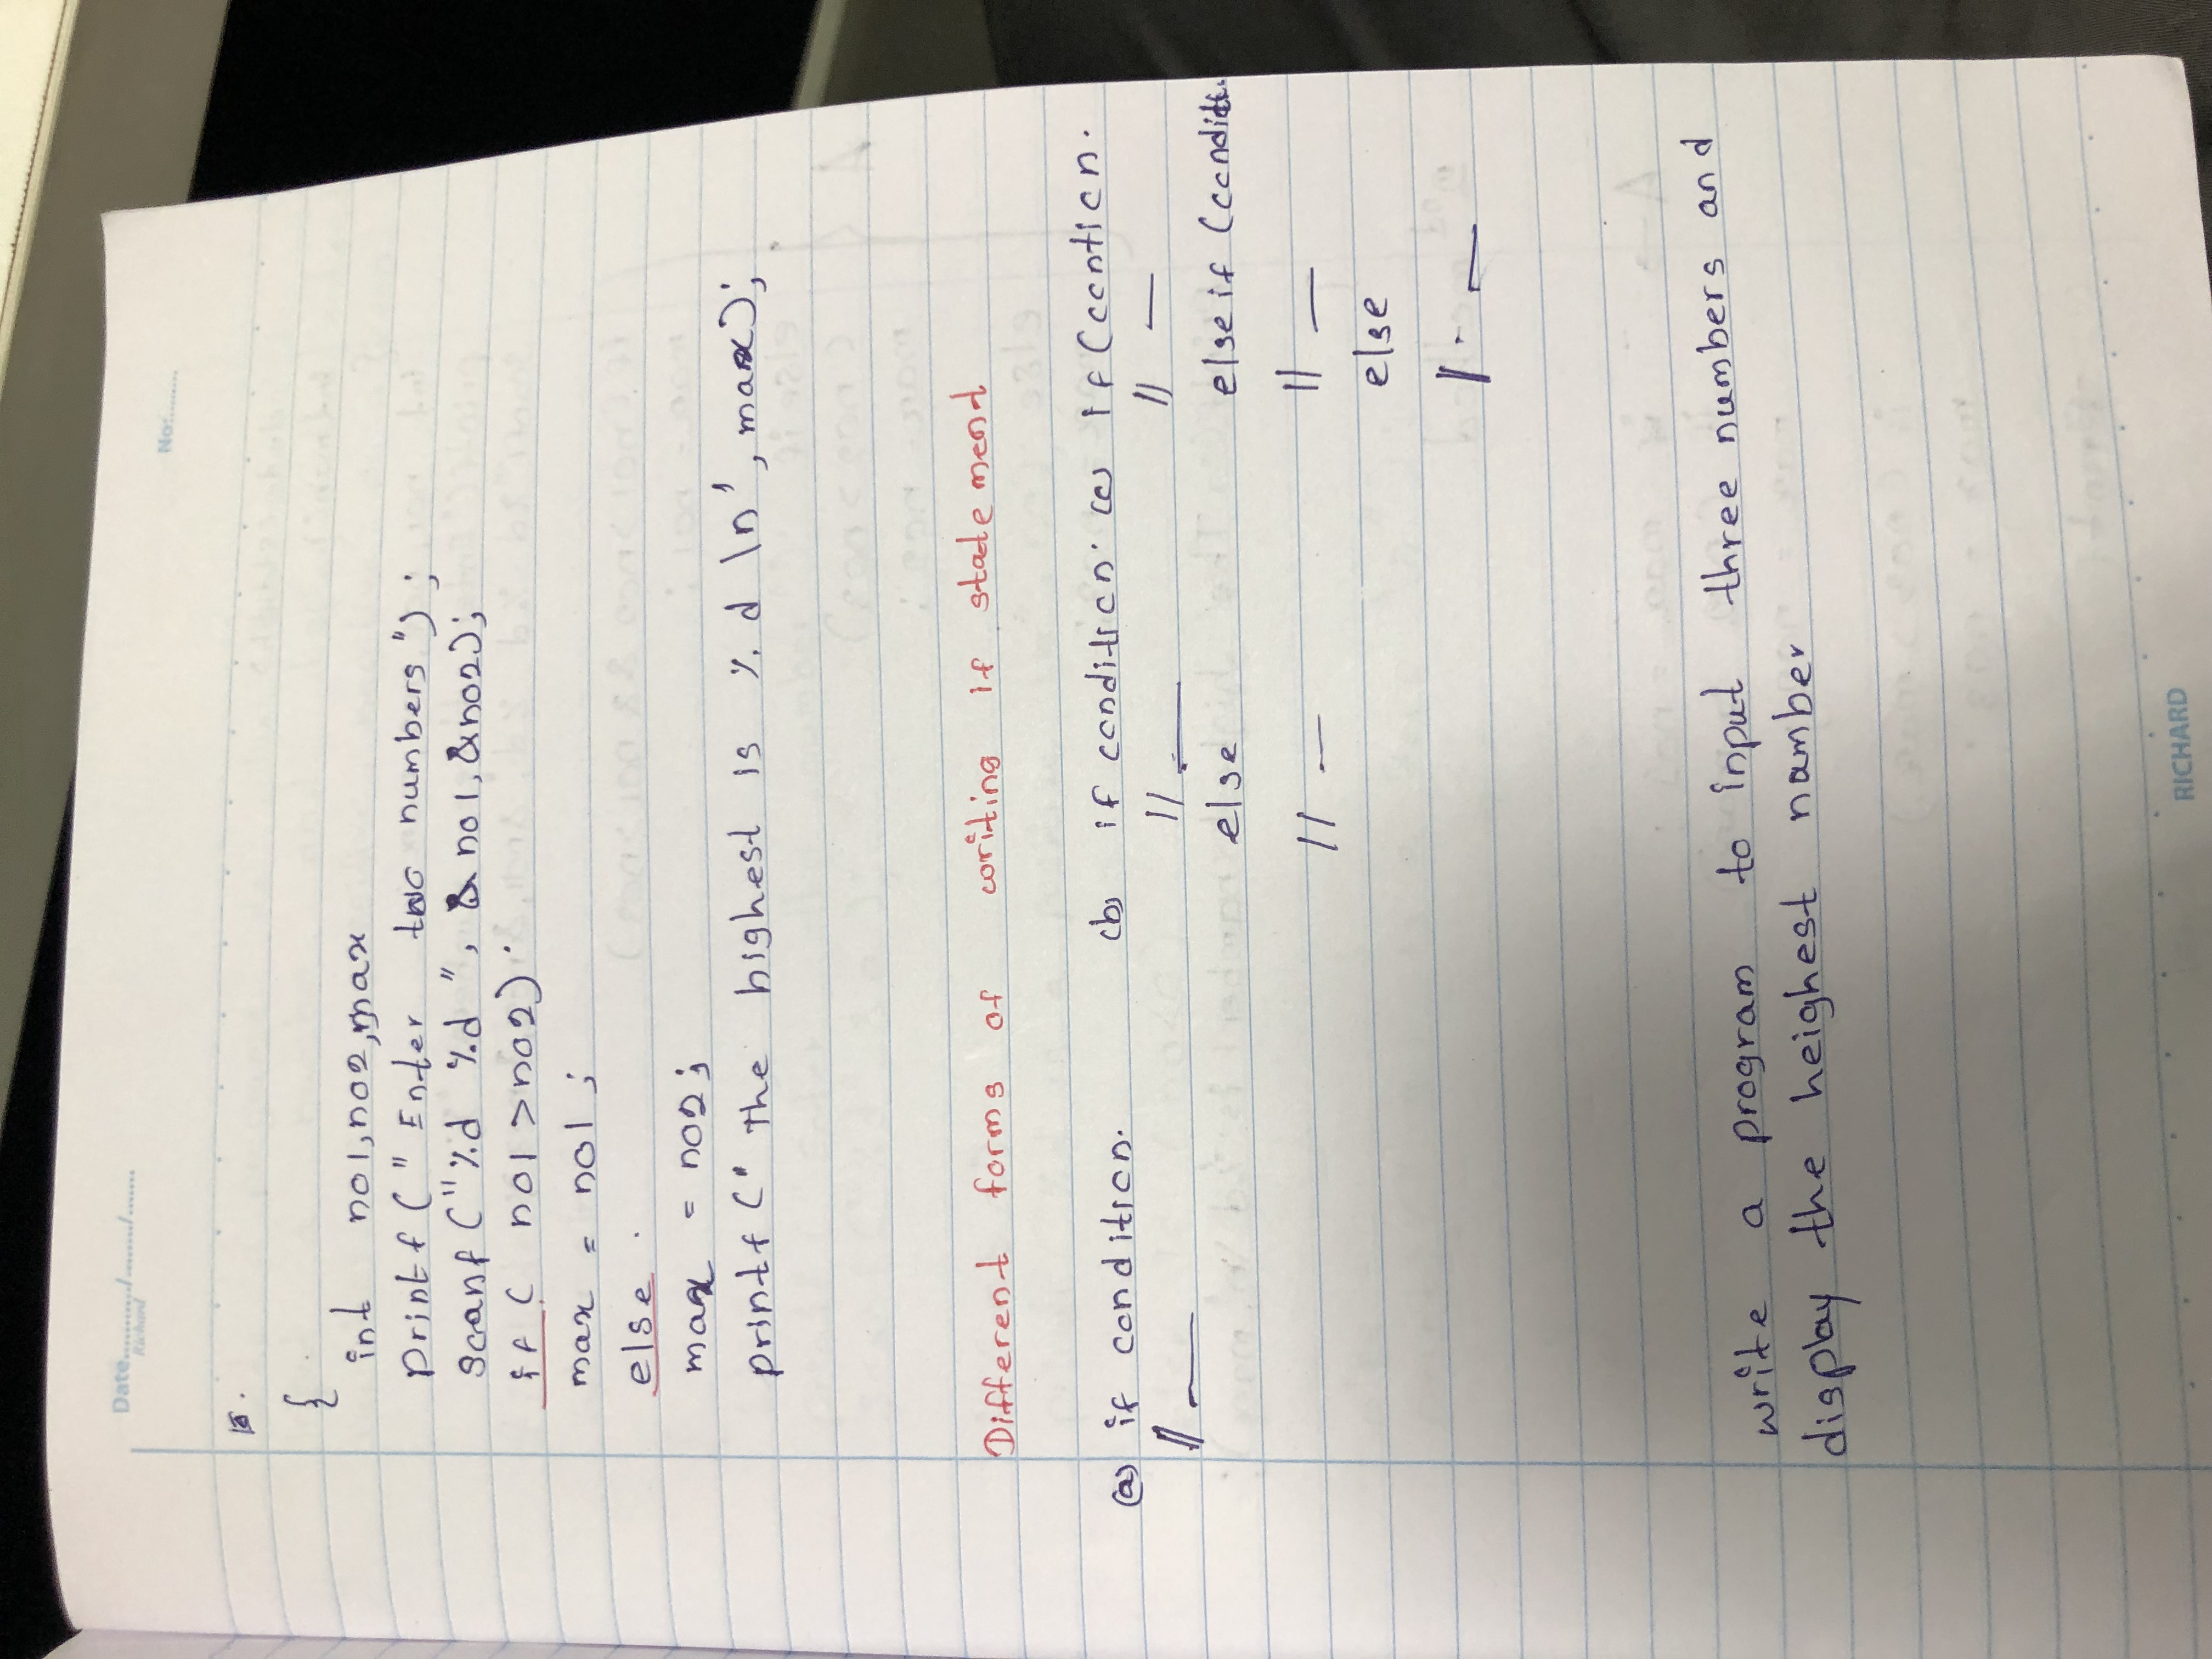 Date.........../......../.......
Richard
No:........
{
int no1,no2,max
printf (" Enter two numbers");
scanf ("%d %d ", & no1, &no2);
if ( no1 >no2)
max = no1 ;
else
max = no2;
printf (" The highest is %. d \n', max);
Different forms of writing if statemend
(a) if condition. (b) if condition. (c) if (contion.
// — // — // —
else else if (condit.
// — // —
else
// —
write a program to input three numbers and
display the heighest namber
RICHARD